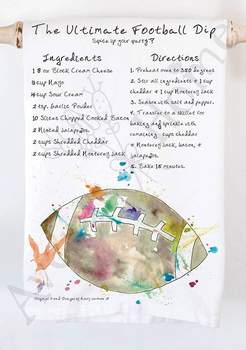 The Ultimate Football Dip
Spice up your party!
Ingredients
1 8 oz Block Cream Cheese
cup Mayo
cup Sour Cream
2 tsp. Garlic Powder
10 Slices Chopped Cooked Bacon
2 Minced Jalapeños
2 cups Shredded Cheddar
2 cups Shredded Monterey Jack
Directions
1. Preheat oven to 350 degrees
2. Stir all ingredients + 1 cup
cheddar + 1 cup Monterey Jack
3. Season with salt and pepper.
4. Transfer to a skillet for
baking and sprinkle with
remaining cup cheddar
+ Monterey Jack, bacon, +
jalapeños.
5. Bake 15 minutes.
Original Hand Designs